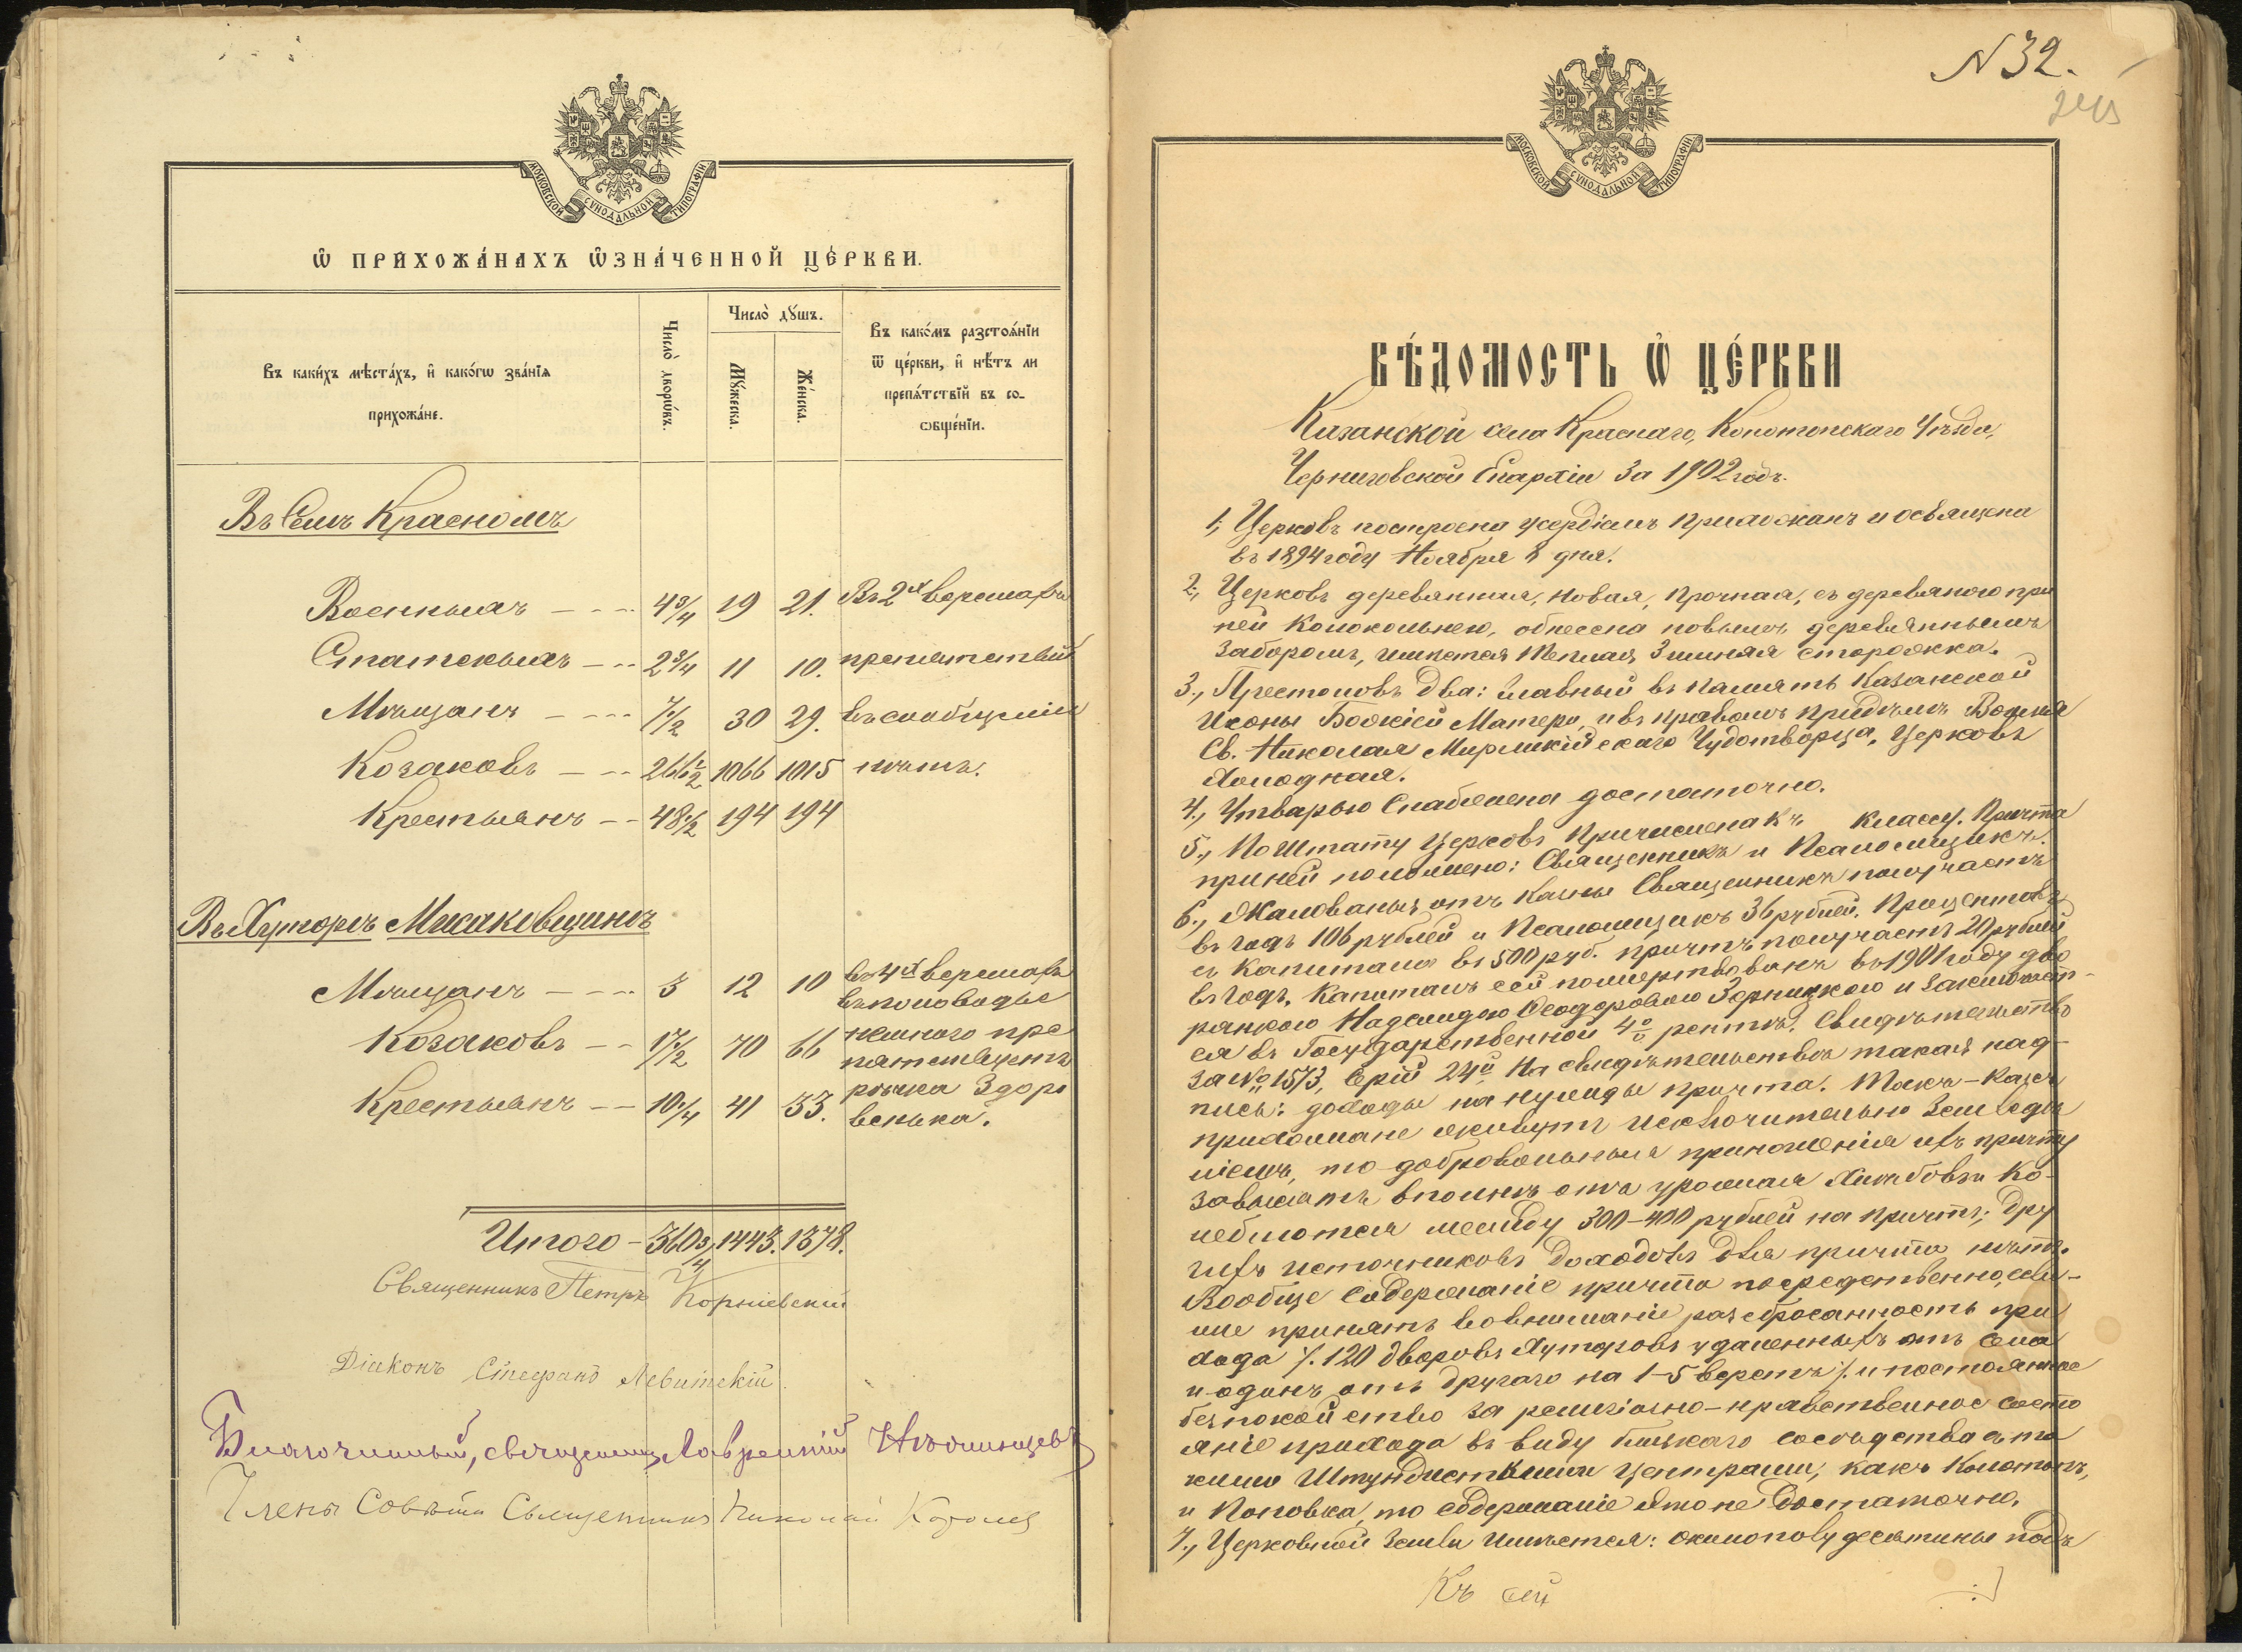 МОСКОВСКОЙ СѴНОДАЛЬНОЙ ТИПОГРАФІИ
Ѡ ПРИХОЖА́НАХЪ ѠЗНА́ЧЕННОЙ ЦЕ́РКВИ.
Въ каки́хъ мѣста́хъ, и҆ како́гѡ зва́нїѧ прихожа́не.
Число̀ дворѡ́въ.
Число̀ дꙋ́шъ.
Мꙋ́жеска.
Же́нска.
Въ како́мъ разстоѧ́нїи
ѿ це́ркви, и҆ нѣ́тъ ли
препѧ́тствїй въ со-
ѻбще́нїи.
Въ Селѣ Красномъ
Военныхъ — 4 3/4 19 21. Въ 2х верстахъ
Статскыхъ — 2 3/4 11 10. препятствий
Мѣщанъ — 7 1/2 30 29. въ сообщеніи
Козаковъ — 266 1/2 1066 1015 нѣтъ.
Крестьянъ — 48 1/2 194 194
Въ Хуторѣ Мисаковщинѣ
Мѣщанъ — 3 12 10 въ 4х верстахъ
въ половодье
Козаковъ — 17 1/2 70 66 немного пре
пятствуетъ
Крестьянъ — 10 1/4 41 33. рѣчка
Итого — 360 3/4 1443. 1378.
Священникъ Петръ Корніевскій
Діаконъ Стефанъ Левитскій.
Благочинный, священникъ Лаврентій
Члены Совѣта Священникъ Николай
N 32.
МОСКОВСКОЙ СѴНОДАЛЬНОЙ ТИПОГРАФІИ
ВѢ́ДОМОСТЬ Ѡ҆ ЦЕ́РКВИ
Казанской села Краснаго, Конотопскаго Уѣзда,
Черниговской Епархіи за 1902 годъ.
1, Церковь построена усердіемъ прихожанъ и освящена
въ 1894 году Ноября 8 дня.
2., Церковь деревянная, новая, прочная, съ деревяною при
ней колокольнею, обнесена новымъ деревяннымъ
заборомъ, имѣется теплая, зимняя сторожка.
3., Престоловъ два: главный въ память Казанской
Иконы Божіей Матери, и въ правомъ придѣлѣ во имя
Св. Николая Мирликійскаго Чудотворца, Церковь
холодная.
4., Утварью снабжена достаточно.
5., По штату церковь причислена къ классу. Причта
при ней положено: Священникъ и Псаломщикъ.
6., Жалованья отъ казны Священникъ получаетъ
въ годъ 106 рублей и Псаломщикъ 36 рублей. Процентовъ
съ капитала въ 500 руб. причтъ получаетъ 20 рублей
въ годъ. Капиталъ сей пожертвованъ въ 1901 году дво
рянкою Надеждою Ѳеодоровою и заключает-
ся въ Государственной 4% рентѣ. Свидѣтельство
за № 1573, Серіи 24й На свидѣтельствѣ такая над-
пись: доходы на нужды причта. Такъ-какъ
прихожане живутъ исключительно земледѣ
ліемъ, то добровольныя приношенія ихъ причту
зависятъ вполнѣ отъ урожая хлѣбовъ и ко-
леблются между 300-400 рублей на причтъ; дру
гихъ источниковъ доходовъ для причта нѣтъ.
Вообще содержаніе причта посредственно, если-
же принять во вниманіе разбросанность при
хода /. 120 дворовъ хуторовъ удаленныхъ отъ села
и одинъ отъ другаго на 1-5 верстъ /. и постоянное
безпокойство за религіозно-нравственное состо
яніе прихода въ виду близкаго сосѣдства съ та
кими Штундистскими центрами, какъ Конотопъ,
и Поповка, то содержаніе это не достаточно.
7., Церковной земли имѣется: около полудесятины подъ
Къ сей